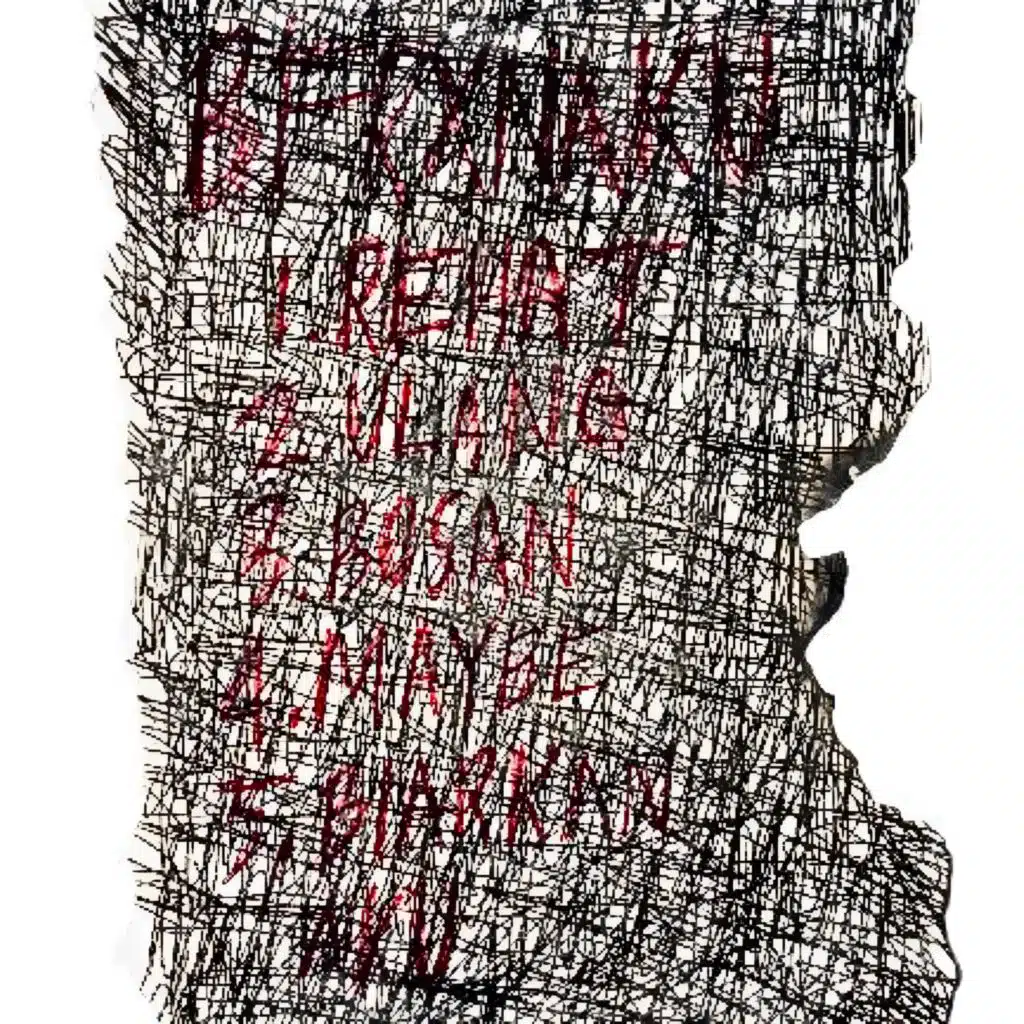 BEFOXNAKU
1. REHAT
2 ULANG
3. BOSAN
4. MAYBE
5. BIARKAN
AKU